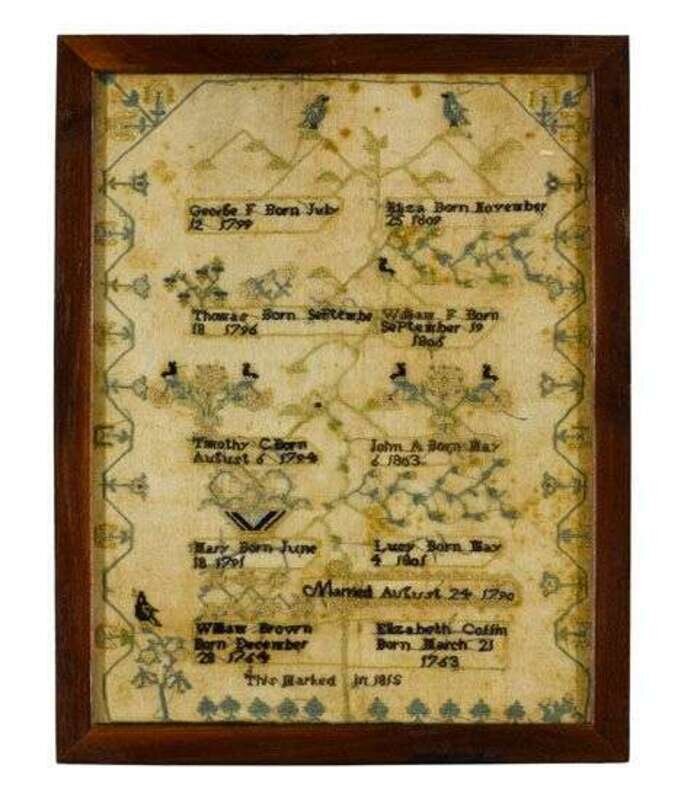 George F Born July
12 1799
Eliza Born November
25 1809
Thomas Born Septembe
18 1796
William F Born
September 19
1806
Timothy C. Born
August 6 1794
John A Born May
6 1863
Mary Born June
18 1791
Lucy Born May
4 1801
Married August 24 1790
William Brown
Born December
28 1764
Elizabeth Coffin
Born March 21
1763
This Marked in 1818